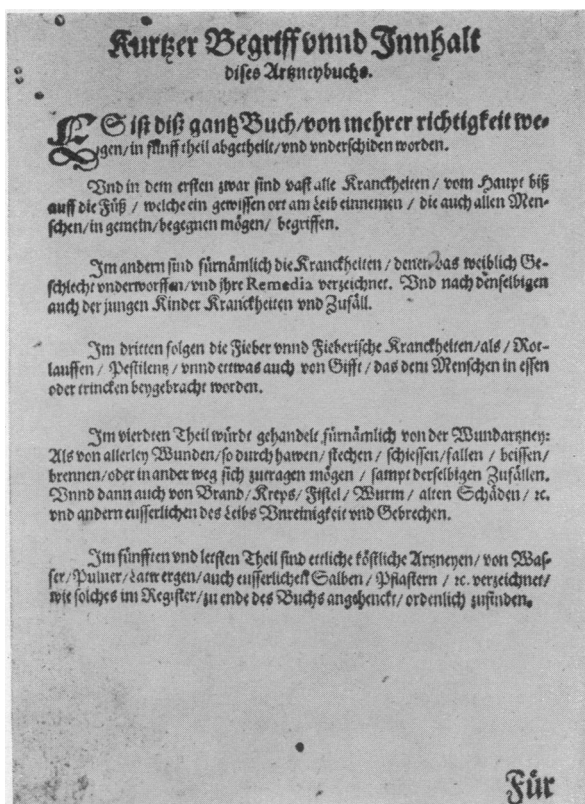 Kurtzer Begriff vnnd Innhalt
dises Artzneybuchs.
ES ist diß gantz Buch/von mehrer richtigkeit we-
gen/in fünff theil abgetheilt/vnd vnderschiden worden.
Vnd in dem ersten zwar sind vast alle Kranckheiten / vom Haupt biß
auff die Füß / welche ein gewissen ort am Leib einnemen / die auch allen Men-
schen/in gemein/begegnen mögen / begriffen.
Im andern sind fürnämlich die Kranckheiten / denen das weiblich Ge-
schlecht vnderworffen/vnd jhre Remedia verzeichnet. Vnd nach denselbigen
auch der jungen Kinder Kranckheiten vnd Zufäll.
Im dritten folgen die Fieber vnnd Fieberische Kranckheiten/als / Rot-
lauffen / Pestilentz / vnnd ettwas auch von Gifft / das dem Menschen in essen
oder trincken beygebracht worden.
Im vierdten Theil würdt gehandelt fürnämlich von der Wundartzney:
Als von allerley Wunden/so durch hawen/stechen / schiessen/fallen / beissen/
brennen/oder in ander weg sich zutragen mögen / sampt derselbigen Zufällen.
Vnnd dann auch von Brand/Kreps/Fistel/Wurm / alten Schäden / ꝛc.
vnd andern eusserlichen des Leibs Vnreinigkeit vnd Gebrechen.
Im fünfften vnd letsten Theil sind ettliche köstliche Artzneyen/von Was-
ser/Puluer/Latwergen/auch eusserlichen Salben / Pflastern / ꝛc. verzeichnet/
wie solches im Register/zu ende des Buchs angehenckt/ordenlich zufinden.
Für